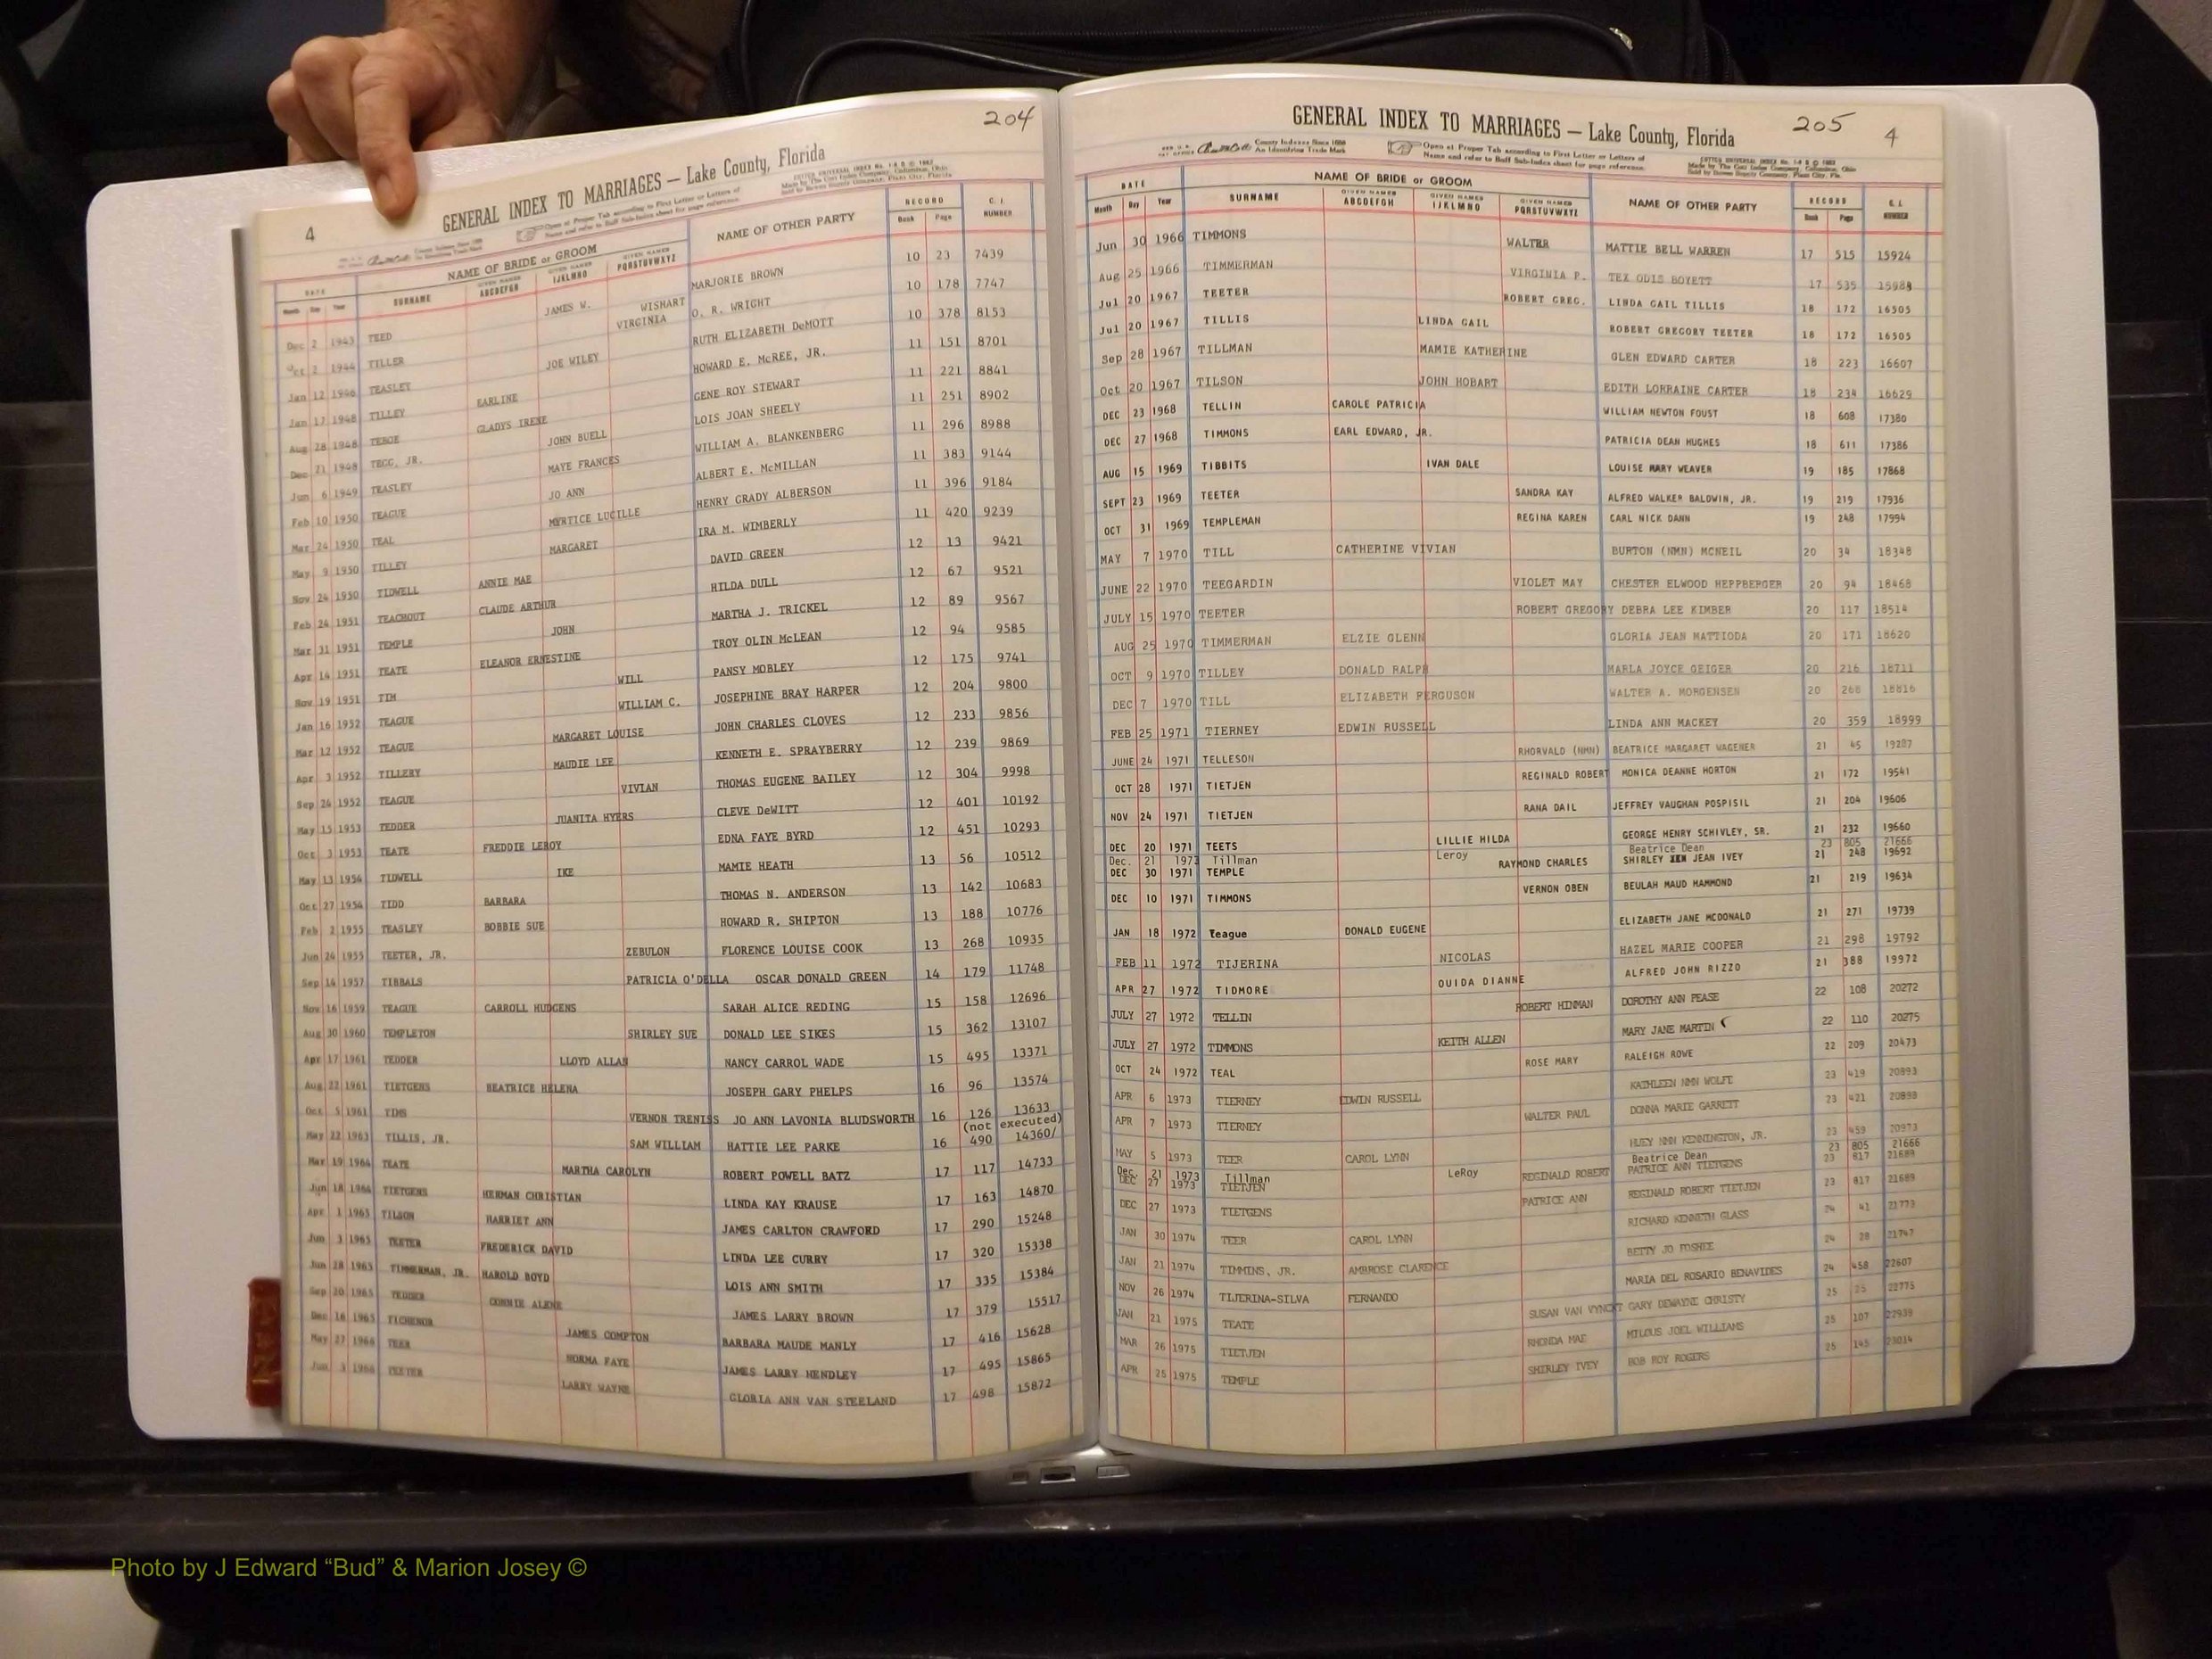 204
4
GENERAL INDEX TO MARRIAGES — Lake County, Florida
Open at Proper Tab according to First Letter or Letters of
Name and refer to Buff Sub-Index sheet for page reference.
DATE NAME OF BRIDE or GROOM NAME OF OTHER PARTY RECORD C. I. NUMBER
Month Day Year SURNAME GIVEN NAMES ABCDEFGH GIVEN NAMES IJKLMNO GIVEN NAMES PQRSTUVWXYZ Book Page
Dec 2 1943 TEED JAMES W. WISHART MARJORIE BROWN 10 23 7439
Oct 2 1944 TILLER VIRGINIA O. R. WRIGHT 10 178 7747
Jan 12 1946 TEASLEY JOE WILEY RUTH ELIZABETH DeMOTT 10 378 8153
Jan 17 1948 TILLEY EARLINE HOWARD E. McREE, JR. 11 151 8701
Aug 28 1948 TEBOE GLADYS IRENE GENE ROY STEWART 11 221 8841
Dec 21 1948 TEGG, JR. JOHN BUELL LOIS JOAN SHEELY 11 251 8902
Jun 6 1949 TEASLEY MAYE FRANCES WILLIAM A. BLANKENBERG 11 296 8988
Feb 10 1950 TEAGUE JO ANN ALBERT E. McMILLAN 11 383 9144
Mar 24 1950 TEAL MYRTICE LUCILLE HENRY GRADY ALBERSON 11 396 9184
May 9 1950 TILLEY MARGARET IRA M. WIMBERLY 11 420 9239
Nov 24 1950 TIDWELL ANNIE MAE DAVID GREEN 12 13 9421
Feb 24 1951 TEACHOUT CLAUDE ARTHUR HILDA DULL 12 67 9521
Mar 31 1951 TEMPLE JOHN MARTHA J. TRICKEL 12 89 9567
Apr 14 1951 TEATE ELEANOR ERNESTINE TROY OLIN McLEAN 12 94 9585
Nov 19 1951 TIM WILL PANSY MOBLEY 12 175 9741
Jan 16 1952 TEAGUE WILLIAM C. JOSEPHINE BRAY HARPER 12 204 9800
Mar 12 1952 TEAGUE MARGARET LOUISE JOHN CHARLES CLOVES 12 233 9856
Apr 3 1952 TILLERY MAUDIE LEE KENNETH E. SPRAYBERRY 12 239 9869
Sep 24 1952 TEAGUE VIVIAN THOMAS EUGENE BAILEY 12 304 9998
May 15 1953 TEDDER JUANITA HYERS CLEVE DeWITT 12 401 10192
Oct 3 1953 TEATE FREDDIE LEROY EDNA FAYE BYRD 12 451 10293
May 13 1954 TIDWELL IKE MAMIE HEATH 13 56 10512
Oct 27 1954 TIDD BARBARA THOMAS N. ANDERSON 13 142 10683
Feb 2 1955 TEASLEY BOBBIE SUE HOWARD R. SHIPTON 13 188 10776
Jun 24 1955 TEETER, JR. ZEBULON FLORENCE LOUISE COOK 13 268 10935
Sep 14 1957 TIBBALS PATRICIA O'DELLA OSCAR DONALD GREEN 14 179 11748
Nov 16 1959 TEAGUE CARROLL HUDGENS SARAH ALICE REDING 15 158 12696
Aug 30 1960 TEMPLETON SHIRLEY SUE DONALD LEE SIKES 15 362 13107
Apr 17 1961 TEDDER LLOYD ALLAN NANCY CARROL WADE 15 495 13371
Aug 22 1961 TIETGENS BEATRICE HELENA JOSEPH GARY PHELPS 16 96 13574
Oct 5 1961 TIMS VERNON TRENISS JO ANN LAVONIA BLUDSWORTH 16 126 13633
(not executed)
May 22 1963 TILLIS, JR. SAM WILLIAM HATTIE LEE PARKE 16 490 14360/
Mar 19 1964 TEATE MARTHA CAROLYN ROBERT POWELL BATZ 17 117 14733
Jun 18 1964 TIETGENS HERMAN CHRISTIAN LINDA KAY KRAUSE 17 163 14870
Apr 1 1965 TILSON HARRIET ANN JAMES CARLTON CRAWFORD 17 290 15248
Jun 3 1965 TEETER FREDERICK DAVID LINDA LEE CURRY 17 320 15338
Jun 28 1965 TIMMERMAN, JR. HAROLD BOYD LOIS ANN SMITH 17 335 15384
Sep 20 1965 TEDDER CONNIE ALENE JAMES LARRY BROWN 17 379 15517
Dec 16 1965 TICHENOR JAMES COMPTON BARBARA MAUDE MANLY 17 416 15628
May 27 1966 TEER NORMA FAYE JAMES LARRY HENDLEY 17 495 15865
Jun 3 1966 TEETER LARRY WAYNE GLORIA ANN VAN STEELAND 17 498 15872
205
4
GENERAL INDEX TO MARRIAGES — Lake County, Florida
County Indexes Since 1888
An Identifying Trade Mark
Open at Proper Tab according to First Letter or Letters of
Name and refer to Buff Sub-Index sheet for page reference.
DATE NAME OF BRIDE or GROOM NAME OF OTHER PARTY RECORD C. I. NUMBER
Month Day Year SURNAME GIVEN NAMES ABCDEFGH GIVEN NAMES IJKLMNO GIVEN NAMES PQRSTUVWXYZ Book Page
Jun 30 1966 TIMMONS WALTER MATTIE BELL WARREN 17 515 15924
Aug 25 1966 TIMMERMAN VIRGINIA P. TEX ODIS BOYETT 17 535 15988
Jul 20 1967 TEETER ROBERT GREG. LINDA GAIL TILLIS 18 172 16505
Jul 20 1967 TILLIS LINDA GAIL ROBERT GREGORY TEETER 18 172 16505
Sep 28 1967 TILLMAN MAMIE KATHERINE GLEN EDWARD CARTER 18 223 16607
Oct 20 1967 TILSON JOHN HOBART EDITH LORRAINE CARTER 18 234 16629
DEC 23 1968 TELLIN CAROLE PATRICIA WILLIAM NEWTON FOUST 18 608 17380
DEC 27 1968 TIMMONS EARL EDWARD, JR. PATRICIA DEAN HUGHES 18 611 17386
AUG 15 1969 TIBBITS IVAN DALE LOUISE MARY WEAVER 19 185 17868
SEPT 23 1969 TEETER SANDRA KAY ALFRED WALKER BALDWIN, JR. 19 219 17936
OCT 31 1969 TEMPLEMAN REGINA KAREN CARL NICK DANN 19 248 17994
MAY 7 1970 TILL CATHERINE VIVIAN BURTON (NMN) MCNEIL 20 34 18348
JUNE 22 1970 TEEGARDIN VIOLET MAY CHESTER ELWOOD HEPPBERGER 20 94 18468
JULY 15 1970 TEETER ROBERT GREGORY DEBRA LEE KIMBER 20 117 18514
AUG 25 1970 TIMMERMAN ELZIE GLENN GLORIA JEAN MATTIODA 20 171 18620
OCT 9 1970 TILLEY DONALD RALPH MARLA JOYCE GEIGER 20 216 18711
DEC 7 1970 TILL ELIZABETH FERGUSON WALTER A. MORGENSEN 20 268 18816
FEB 25 1971 TIERNEY EDWIN RUSSELL LINDA ANN MACKEY 20 359 18999
JUNE 24 1971 TELLESON RHORVALD (NMN) BEATRICE MARGARET WAGENER 21 45 19287
OCT 28 1971 TIETJEN REGINALD ROBERT MONICA DEANNE HORTON 21 172 19541
NOV 24 1971 TIETJEN RANA DAIL JEFFREY VAUGHAN POSPISIL 21 204 19606
DEC 20 1971 TEETS LILLIE HILDA GEORGE HENRY SCHIVLEY, SR. 21 232 19660
Dec. 21 1973 Tillman Leroy Beatrice Dean 23 805 21666
DEC 30 1971 TEMPLE RAYMOND CHARLES SHIRLEY XXX JEAN IVEY 21 248 19692
DEC 10 1971 TIMMONS VERNON OBEN BEULAH MAUD HAMMOND 21 219 19634
JAN 18 1972 Teague DONALD EUGENE ELIZABETH JANE MCDONALD 21 271 19739
FEB 11 1972 TIJERINA NICOLAS HAZEL MARIE COOPER 21 298 19792
APR 27 1972 TIDMORE OUIDA DIANNE ALFRED JOHN RIZZO 21 388 19972
JULY 27 1972 TELLIN ROBERT HINMAN DOROTHY ANN PEASE 22 108 20272
JULY 27 1972 TIMMONS KEITH ALLEN MARY JANE MARTIN 22 110 20275
OCT 24 1972 TEAL ROSE MARY RALEIGH ROWE 22 209 20473
APR 6 1973 TIERNEY EDWIN RUSSELL KATHLEEN NMN WOLFE 23 419 20893
APR 7 1973 TIERNEY WALTER PAUL DONNA MARIE GARRETT 23 421 20898
MAY 5 1973 TEER CAROL LYNN HUEY NMN KENNINGTON, JR. 23 459 20973
Dec. 21 1973 Tillman LeRoy Beatrice Dean 23 805 21666
DEC 27 1973 TIETJEN REGINALD ROBERT PATRICE ANN TIETGENS 23 817 21689
DEC 27 1973 TIETGENS PATRICE ANN REGINALD ROBERT TIETJEN 23 817 21689
JAN 30 1974 TEER CAROL LYNN RICHARD KENNETH GLASS 24 41 21773
JAN 21 1974 TIMMINS, JR. AMBROSE CLARENCE BETTY JO FOSHEE 24 28 21747
NOV 26 1974 TIJERINA-SILVA FERNANDO MARIA DEL ROSARIO BENAVIDES 24 458 22607
JAN 21 1975 TEATE SUSAN VAN VYNCKT GARY DEWAYNE CHRISTY 25 25 22775
MAR 26 1975 TIETJEN RHONDA MAE MILOUS JOEL WILLIAMS 25 107 22939
APR 25 1975 TEMPLE SHIRLEY IVEY BOB ROY ROGERS 25 145 23014
Photo by J Edward “Bud” & Marion Josey ©